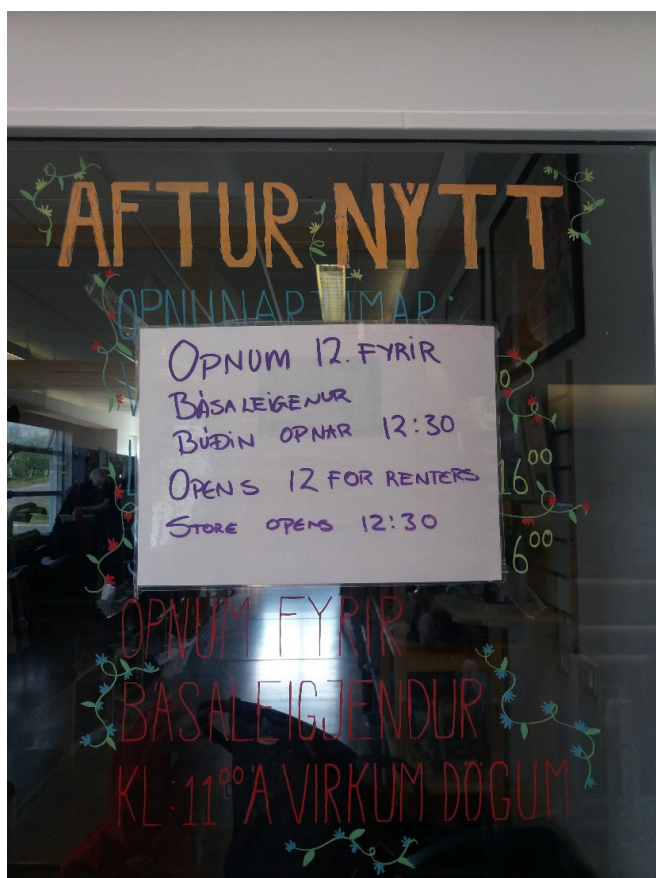 AFTUR NÝTT
OPNUNARTÍMAR:
OPNUM 12. FYRIR
BÁSALEIGENUR
BÚÐIN OPNAR 12:30
OPENS 12 FOR RENTERS
16⁰⁰
STORE OPENS 12:30
6⁰⁰
OPNUM FYRIR
BÁSALEIGJENDUR
KL:11⁰⁰ Á VIRKUM DÖGUM